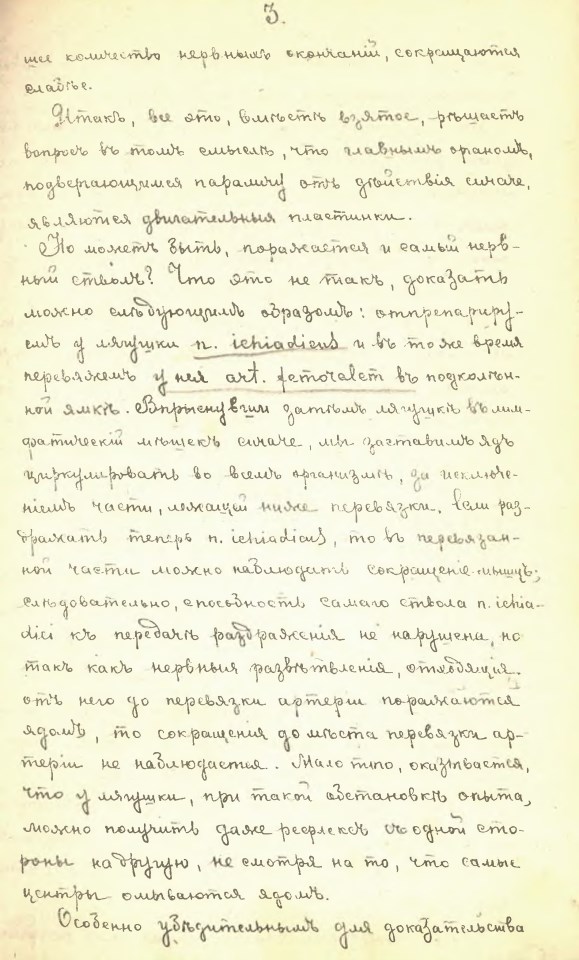 3.
шее количество нервныхъ окончаній, сокращаются
слабѣе.
Итакъ, все это, вмѣстѣ взятое, рѣшаетъ
вопросъ въ томъ смыслѣ, что главнымъ органомъ,
подвергающимся параличу отъ дѣйствія curare,
являются двигательныя пластинки.
Но можетъ быть, поражается и самый нерв-
ный стволъ? Что это не такъ, доказать
можно слѣдующимъ образомъ: отпрепариру-
емъ у лягушки n. ichiadicus и въ тоже время
перевяжемъ у нея art. femoralem въ подколѣн-
ной ямкѣ. Впрыснувши затѣмъ лягушкѣ въ лим-
фатическій мѣшекъ curare, мы заставимъ ядъ
циркулировать во всемъ организмѣ, за исключе-
ніемъ части, лежащей ниже перевязки. Если раз-
дражать теперь n. ichiadicus, то въ перевязан-
ной части можно наблюдать сокращеніе мышцъ;
слѣдовательно, способность самаго ствола n. ichia-
dici къ передачѣ раздраженія не нарушена, но
такъ какъ нервныя развѣтвленія, отходящія
отъ него до перевязки артеріи поражаются
ядомъ, то сокращенія до мѣста перевязки ар-
теріи не наблюдается. Мало того, оказывается,
что у лягушки, при такой обстановкѣ опыта,
можно получить даже рефлексъ съ одной сто-
роны на другую, не смотря на то, что самые
центры омываются ядомъ.
Особенно убѣдительнымъ для доказательства